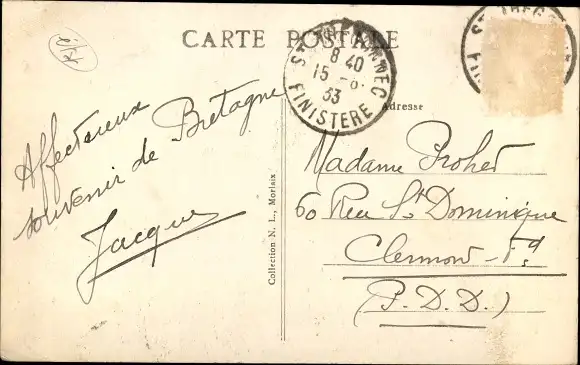 CARTE POSTALE
8 40
15 -8.
33
FINISTERE
Adresse
Affectueux
souvenir de Bretagne
Jacques
Collection N. L., Morlaix
Madame
60 Rue St Dominique
Clermont-Fd
(P.D.D.)